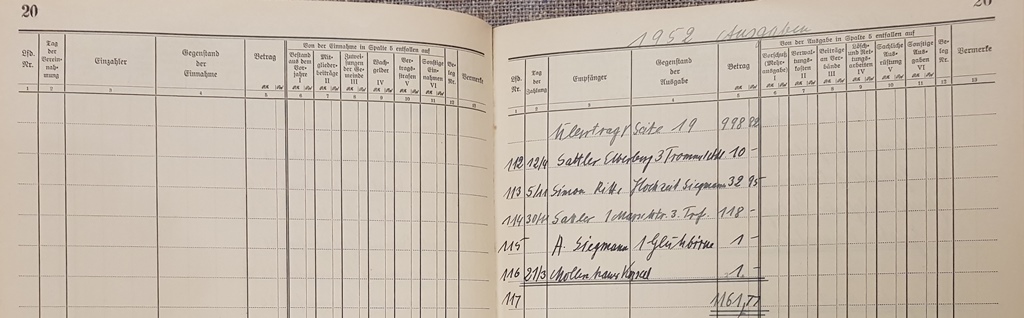 20
Lfd. Nr.
Tag der Vereinnahmung
Einzahler
Gegenstand der Einnahme
Betrag
Von der Einnahme in Spalte 5 entfallen auf
Bestand aus dem Vorjahre I
Mitgliederbeiträge II
Zuwendungen der Gemeinde III
Wachgelder IV
Vertragsstrafen V
Sonstige Einnahmen VI
Beleg Nr.
Vermerke
1 2 3 4 5 6 7 8 9 10 11 12 13
20
1952 Ausgaben
Lfd. Nr.
Tag der Zahlung
Empfänger
Gegenstand der Ausgabe
Betrag
Von der Ausgabe in Spalte 5 entfallen auf
Vorschuß (Mehrausgabe) I
Verwaltungskosten II
Beiträge an Verbände III
Lösch- und Rettungsarbeiten IV
Sachliche Ausrüstung V
Sonstige Ausgaben VI
Beleg Nr.
Vermerke
1 2 3 4 5 6 7 8 9 10 11 12 13
Übertrag Seite 19 998
112 12/4 Sattler Elberberg 3 10 -
113 5/11 Simon Hochzeit Siegmann 32 95
114 30/11 Sattler 1 3 118 -
115 A. Siegmann 1 Glühbirne 1 -
116 21/3 1.-
117 1161,77